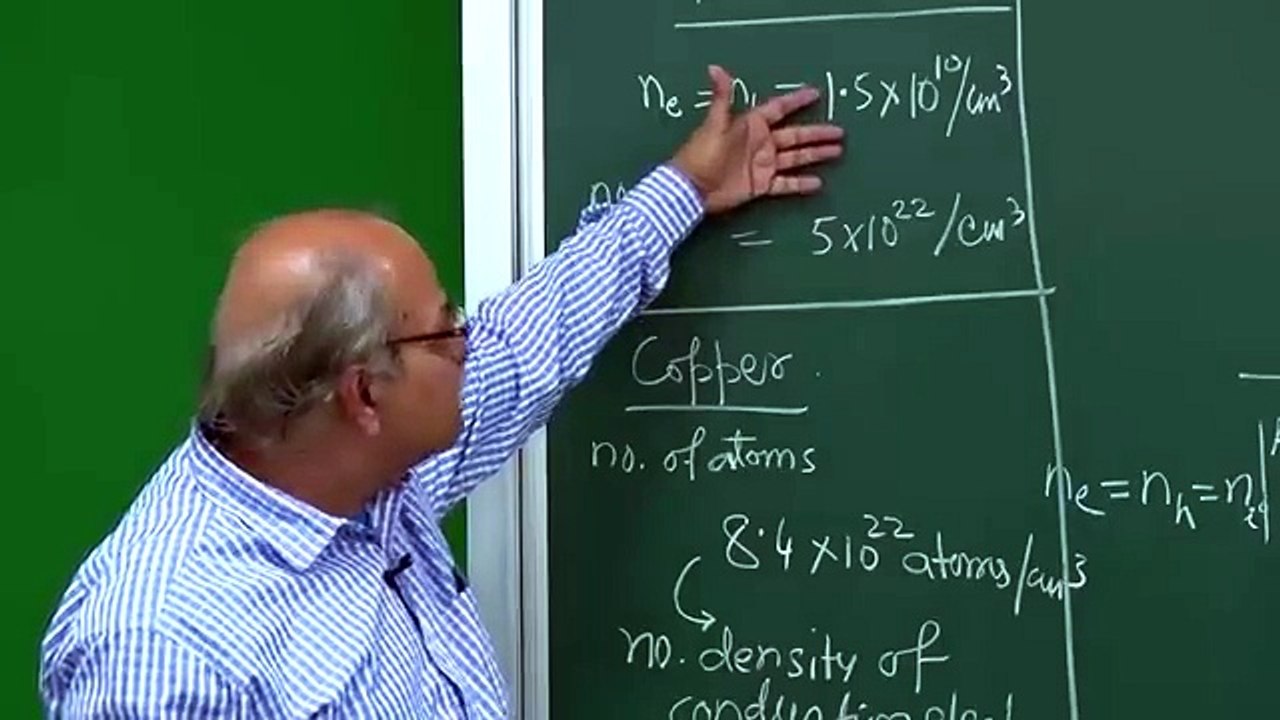 ne = n = 1.5×10^10/cm³
= 5×10^22/cm³
Copper.
no. of atoms
8.4×10^22 atoms/cm³
no. density of
ne = nh = ni